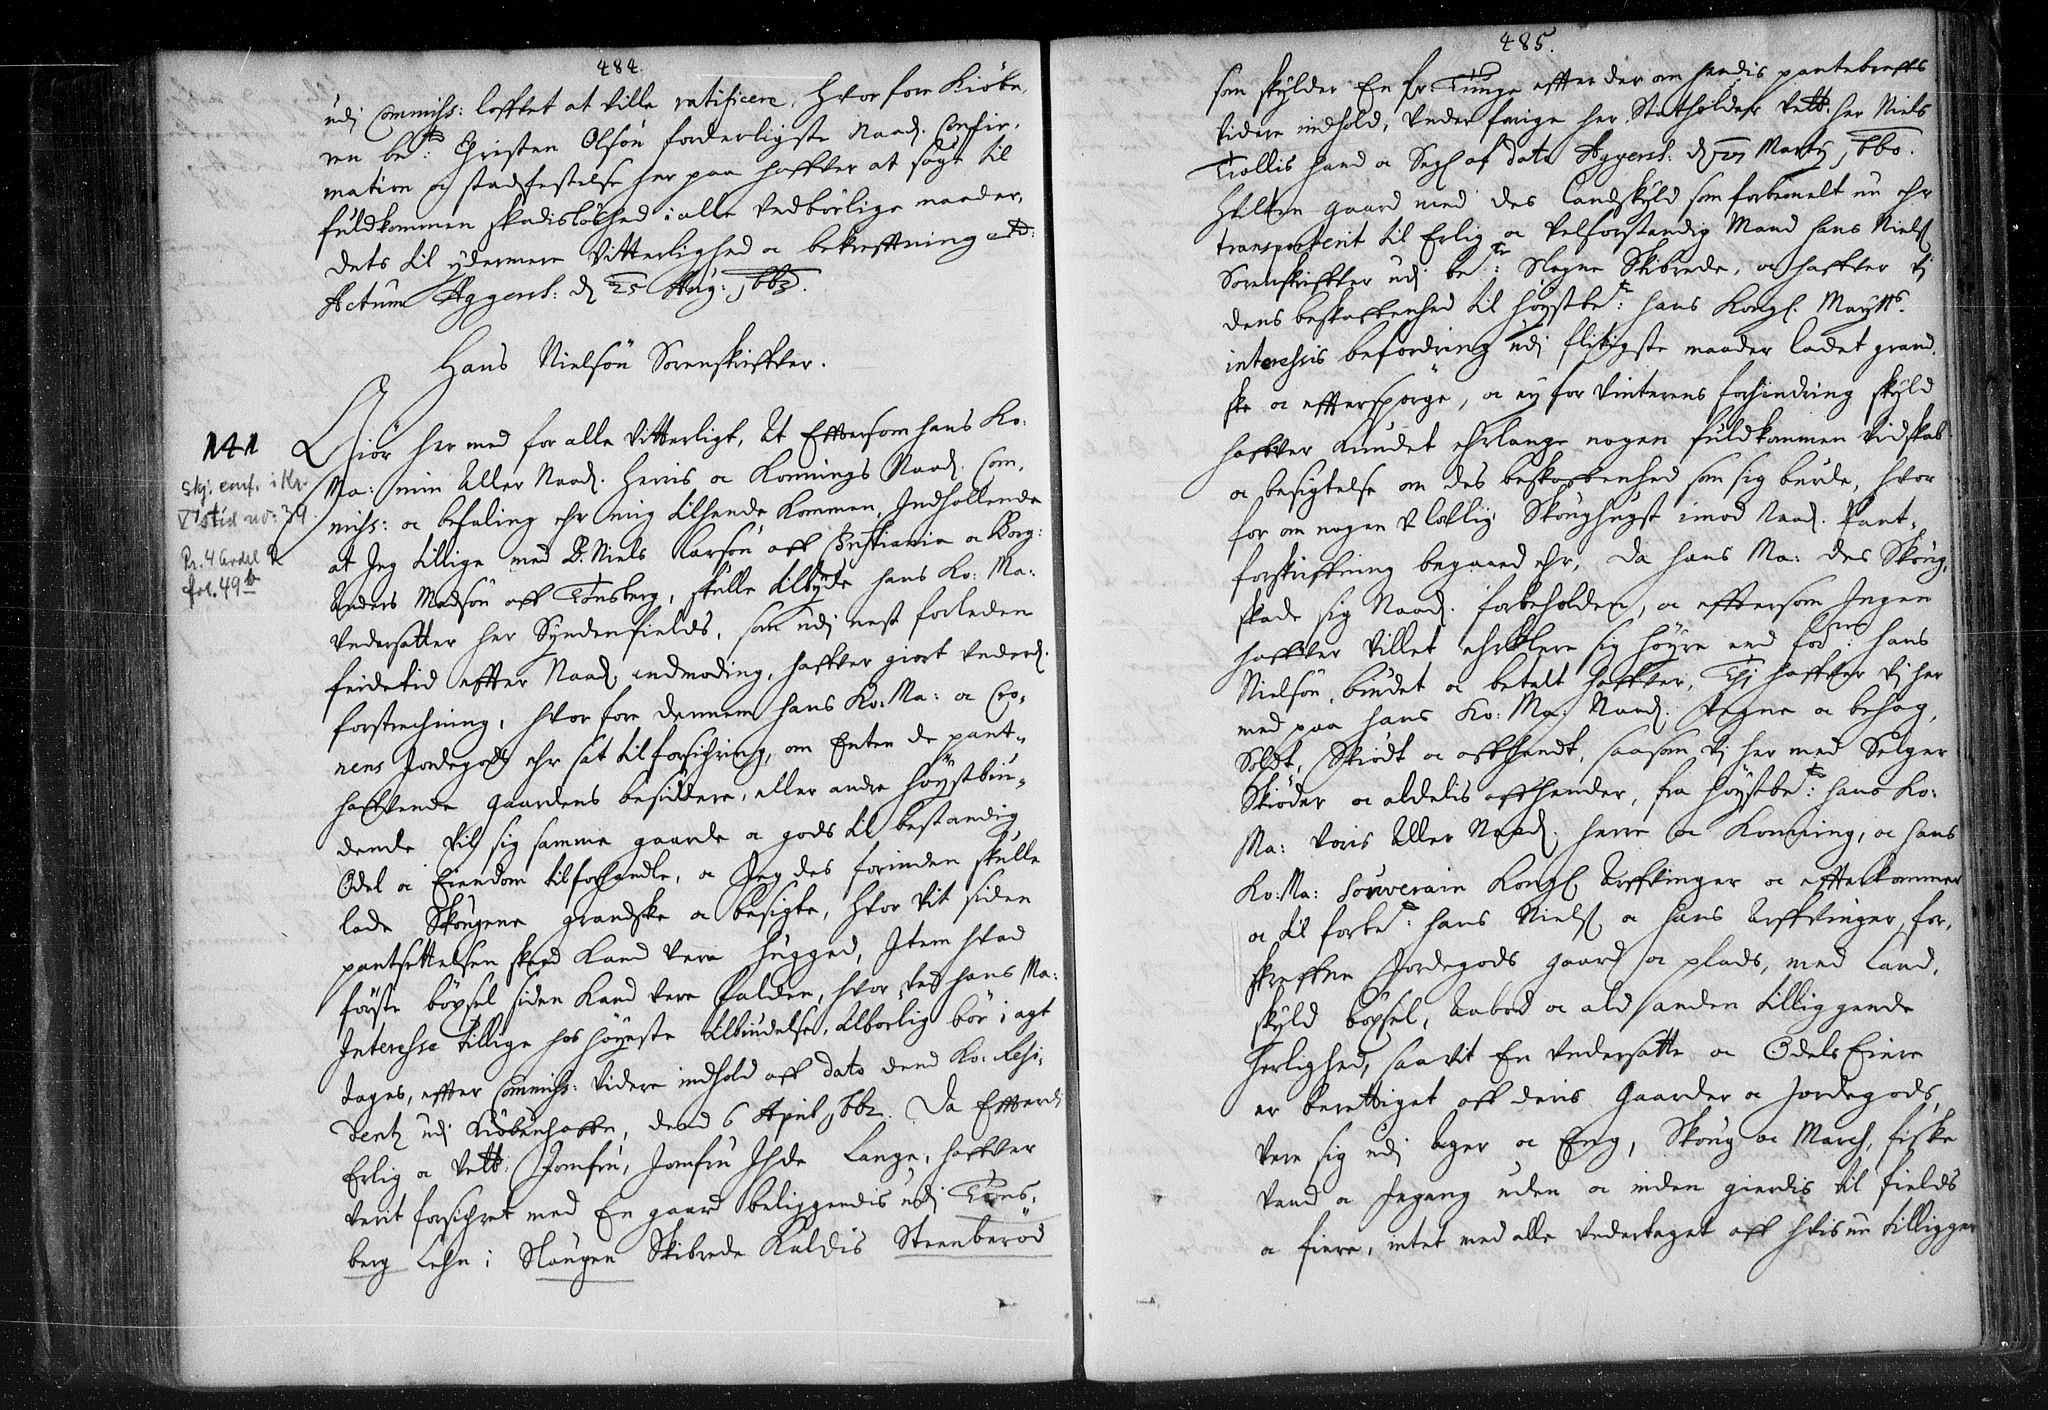 484.
udj Commihs: loffvet at ville ratificere, hvor fore Kiöbe,
ren be:te Christen Olsön forderligste Naad. Confir,
mation oc stadfestelse her paa haffver at söge til
fuldkommen skadislöshed i alle vedbörlige maader,
dets til ydermere Vitterlighed oc bekrefftning etc:
Actum Aggersh: d 25 Aug: 1662.
Hans Nielsön Sorenskriffver.
141
Skj. conf. i Kr.
V's tid no: 39.
Pr. 4 Ardal R
fol. 49b
Giör her med for alle vitterligt, At Efftersom hans Ko:
Ma: min Aller Naad. Herris oc Konnings Naad. Com,
mihs: oc befaling ehr mig tilhende kommen, Indhollende
at Jeg tillige med B: Niels Larsön aff Christiania oc Borg:
Anders Madsön aff Tönsberg, skulle tilbyde hans Ko: Ma:
Undersatter her Syndenfields, som udj nest forleden
feidetid effter Naad. anmoding, haffver giort underd.
forstrechning, hvor fore dennem hans Ko: Ma: oc Cro-
nens Jordegods ehr sat til forsichring, om Enten de pant-
haffvende gaardens besiddere, eller andre höystbiu-
dende vil sig samme gaarde oc gods til bestandig
Odel oc Eiendom tilforhandle, oc Jeg des forinden skulle
lade Skougene grandske oc besigte, hvor vit siden
pantsettelsen skeed kand vere hugged, Item hvad
förste böxsel siden kand vere falden, hvor ved hans Ma:
Interesse tillige hos höyeste tilbudelse, tilbörlig bör i agt
tages, effter Commihs: videre indhold aff dato dend Ko: Resi-
dentz udj Kiöbenhaffn, dend 6 April 1662. Da Effterdj
Erlig oc Velb: Jomfru, Jomfru Ide Lange, haffver
verit forsichret med En gaard beliggendis udj Töns-
berg Lehn i Slaugen Skibrede Kaldis Steenberöd
485.
som skylder En fr: Tunge effter der om hendis pantebreffs
videre indhold, under forige her Statholder Velb: her Niels
Trollis hand oc Segl af dato Aggersh: d 27 Marty 1660.
Hvilken gaard med des Landskyld som forbemelt nu ehr
transporterit til Erlig oc Velforstandig Mand Hans Niels
Sorenskriffver udj be:te Slagne Skibrede, oc haffver Vj
dens beskaffenhed til höystbe:te hans Kongl. Maytts
interessis befordring udj flitigste maader ladet grand,
ske oc effterspörge, oc ey for Vinterens forhindring skyld
haffver kundet ehrlange nogen fuldkommen Vidskab
oc besigtelse om des beskaffenhed som sig burde, hvor
for om nogen Vlovlig Skoughugst imod Naad. Pant-
forskriffning begaaed ehr, da hans Ma: des Skoug,
skade sig Naad. forbeholden, oc efftersom Ingen
haffver villet ehrklere sig höyre end for:ne hans
Nielsön budet oc betalt haffver, Thj haffver Vj her
med paa hans Ko: Ma: Naad. Vegne oc behag,
Soldt, Skiödt oc affhendt, saasom Vj her med Selger
Skiöder oc aldelis affhender, fra höystbe:te hans Ko:
Ma: voris Aller Naad. herre oc Konning, oc hans
Ko: Ma: Souverain Kongl Arffvinger oc effterkommer
oc til forbe:te Hans Niels oc hans Arffvinger, for,
skreffne Jordegods gaard oc plads, med Land,
skyld böxsel, Aabod oc ald anden tilliggende
herlighed, saavit En undersatte oc Odels Eiere
er berettiget aff deris Gaarder oc Jordegods,
vere sig udj Ager oc Eng, Skoug oc March, fiske
vand oc fegang uden oc inden gierdis til fields
oc fiere, intet med alle undertaget aff hvis nu tilligger